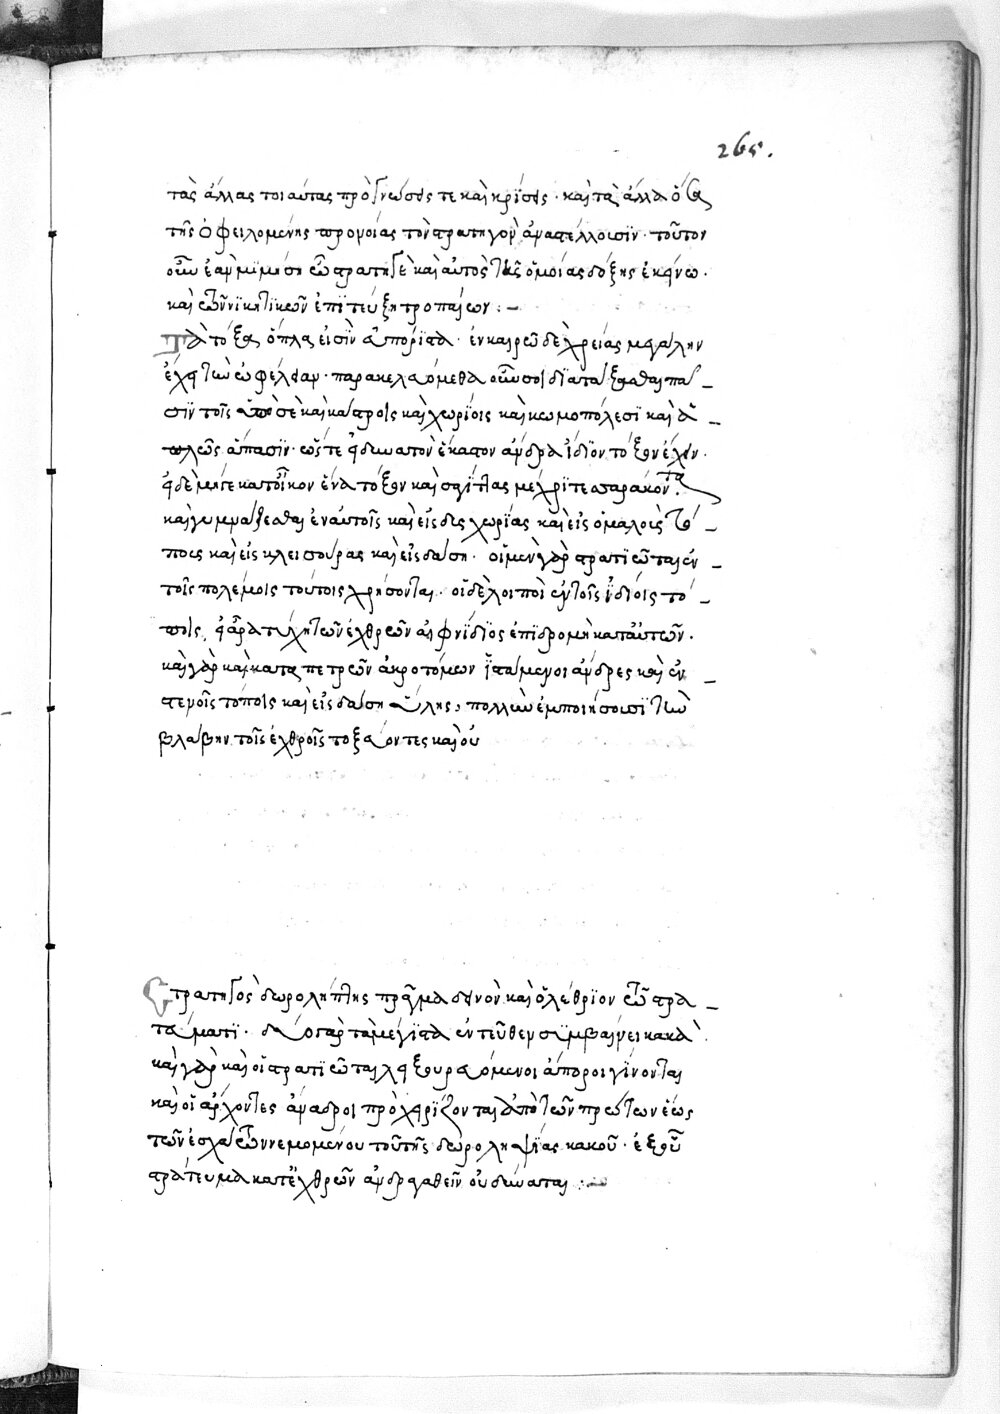 265.
τὰς ἄλλας τοιαύτας προγνώσεις τε καὶ κρίσεις· καὶ τὰ ἄλλα ὅσα
τῆς ὀφειλομένης προνοίας τὸν στρατηγὸν ἀναστέλλουσιν· τοῦτον
οὖν ἐὰν μιμήση ὦ στρατηγὲ καὶ αὐτὸς τῆς ὁμοίας δόξης ἐκείνω·
καὶ τῶν νικητικῶν ἐπιτεύξη τροπαίων:–
Τὰ τόξα ὅπλα εἰσὶν εὐπόριστα· ἐν καιρῶ δὲ χρείας μεγάλην
ἔχει τὴν ὠφέλειαν· παρακελευόμεθα οὖν σοι διατάξασθαι πᾶ–
σιν τοῖς ὑπὸ σὲ καὶ κάστροις καὶ χωρίοις καὶ κωμοπόλεσι καὶ ἁ–
πλῶς ἅπασιν· ὥστε εἰ δυνατὸν ἕκαστον ἄνδρα ἴδιον τόξον ἔχειν·
εἰ δὲ μήγε κατοῖκον ἕνα τόξον καὶ σαγίτας μέχρι τεσσαράκοντα·
καὶ γυμνάζεσθαι ἐν αὐτοῖς καὶ εἰς δυσχωρίας καὶ εἰς ὁμαλοὺς τό–
πους καὶ εἰς κλεισούρας καὶ εἰς δάση· οἱ μὲν γὰρ στρατιῶται ἐν–
τοῖς πολέμοις τούτοις χρήσονται· οἱ δὲ λοιποὶ ἐν τοῖς ἰδίοις τό–
ποις, εἰ ἄρα τύχη τῶν ἐχθρῶν αἰφνίδιος ἐπιδρομὴ κατ' αὐτῶν·
καὶ γὰρ καὶ κατὰ πετρῶν ἀκροτόμων ἱστάμενοι ἄνδρες καὶ ἐν–
στενοῖς τόποις καὶ εἰς δάση ὕλης, πολλὴν ἐμποιήσουσι τὴν
βλάβην τοῖς ἐχθροῖς τοξεύοντες καὶ οὐ
Στρατηγὸς δωρολήπτης πρᾶγμα δεινὸν καὶ ὀλέθριον τῶ στρα–
τεύματι· δύο γὰρ τὰ μέγιστα ἐντεῦθεν συμβαίνει κακὰ·
καὶ γὰρ καὶ οἱ στρατιῶται ἐξκουσευόμενοι ἄποροι γίνονται
καὶ οἱ ἄρχοντες ἄνανδροι προχειρίζονται ἀπὸ τῶν πρώτων ἕως
τῶν ἐσχάτων νεμομένου τοῦ τῆς δωροληψίας κακοῦ· ἐξ οὗ
στράτευμα κατ' ἐχθρῶν ἀνδραγαθεῖν οὐ δύναται:–